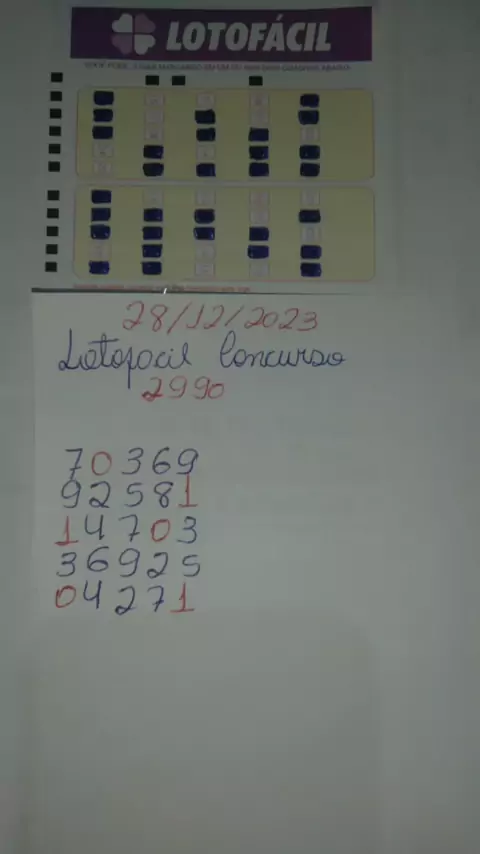 LOTOFÁCIL
28/12/2023
Lotofacil Concurso
2990
70369
92581
14703
36925
04271